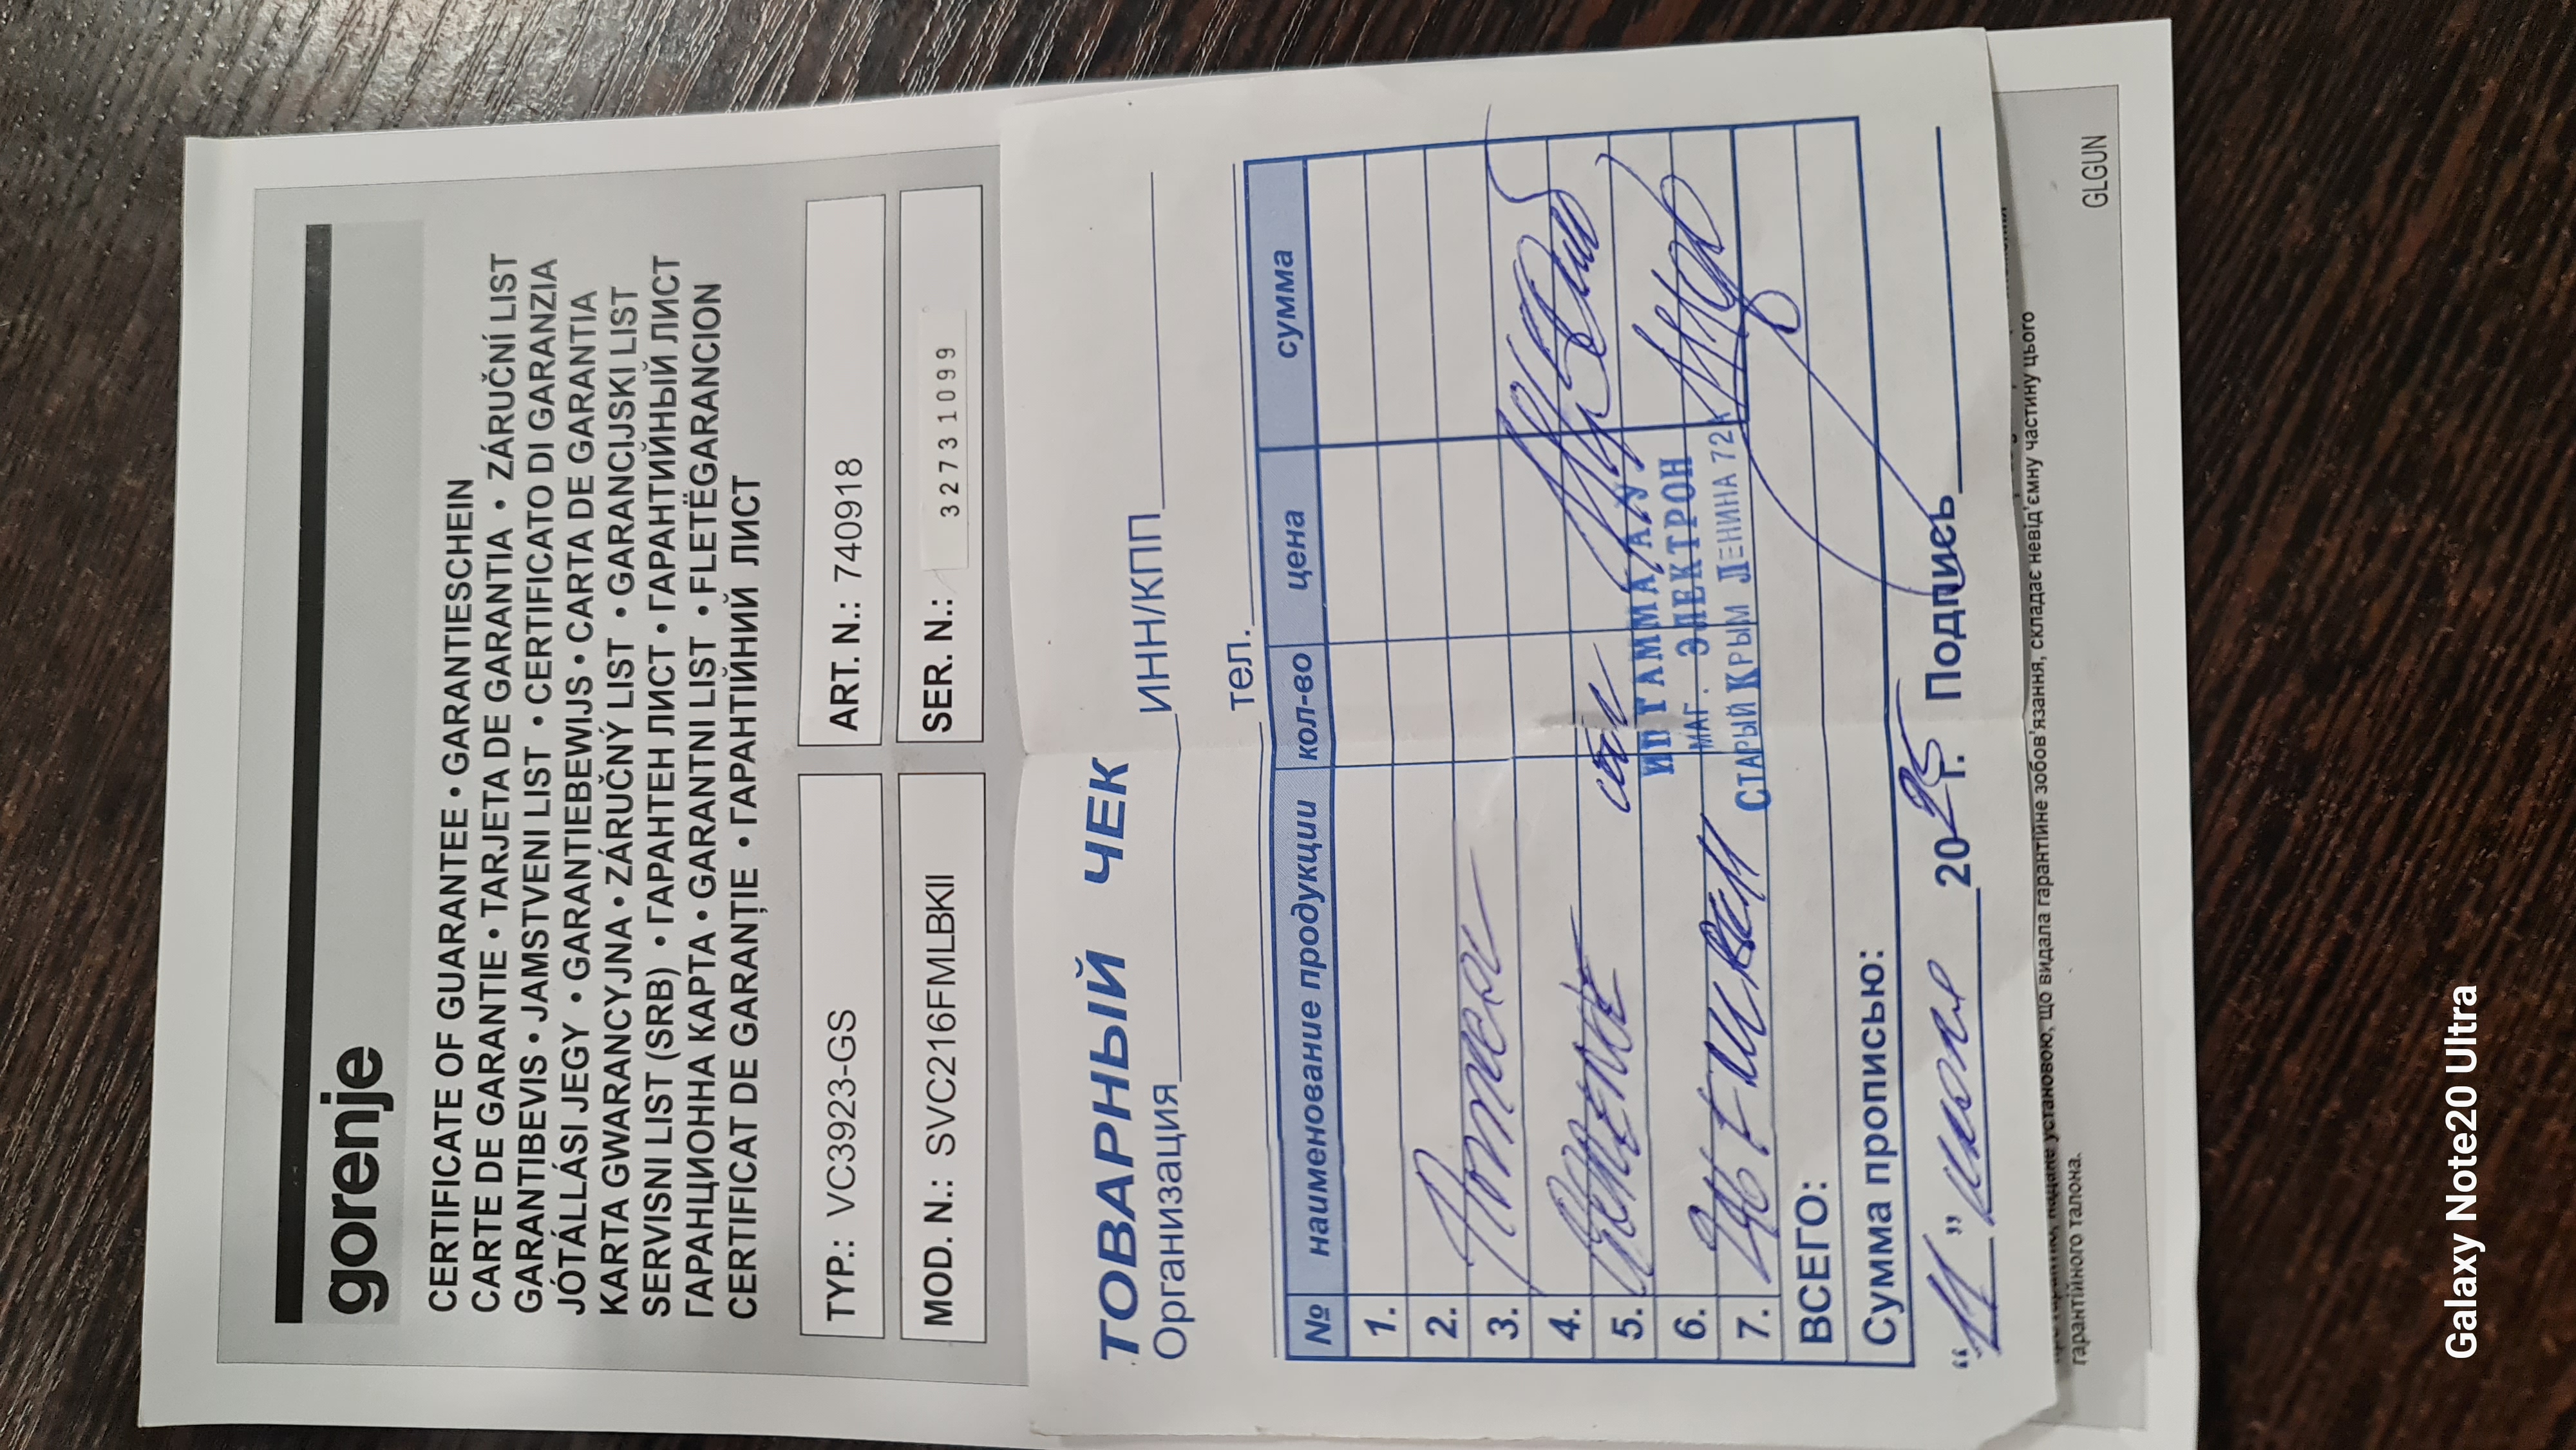 gorenje
CERTIFICATE OF GUARANTEE • GARANTIESCHEIN
CARTE DE GARANTIE • TARJETA DE GARANTIA • ZÁRUČNÍ LIST
GARANTIBEVIS • JAMSTVENI LIST • CERTIFICATO DI GARANZIA
JÓTÁLLÁSI JEGY • GARANTIEBEWIJS • CARTA DE GARANTIA
KARTA GWARANCYJNA • ZÁRUČNÝ LIST • GARANCIJSKI LIST
SERVISNI LIST (SRB) • ГАРАНТЕН ЛИСТ • ГАРАНТИЙНЫЙ ЛИСТ
ГАРАНЦИОННА КАРТА • GARANTNI LIST • FLETËGARANCION
CERTIFICAT DE GARANȚIE • ГАРАНТІЙНИЙ ЛИСТ
TYP.: VC3923-GS ART. N.: 740918
MOD. N.: SVC216FMLBKII SER. N.: 32731099
ТОВАРНЫЙ ЧЕК
Организация ИНН/КПП
тел.
№ наименование продукции кол-во цена сумма
1.
2.
3.
4.
5.
6.
7.
ИП ГАММА А.У.
МАГ. ЭЛЕКТРОН
СТАРЫЙ КРЫМ ЛЕНИНА 72
ВСЕГО:
Сумма прописью:
"11" июля 2025 г. Подпись
установою, що видала гарантійне зобов'язання, складає невід'ємну частину цього
гарантійного талона.
GLGUN
Galaxy Note20 Ultra